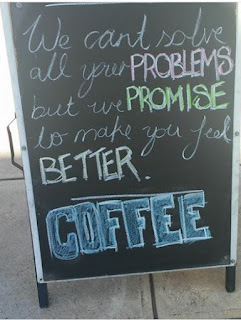 We can't solve
all your PROBLEMS
but we PROMISE
to make you feel
BETTER.
COFFEE